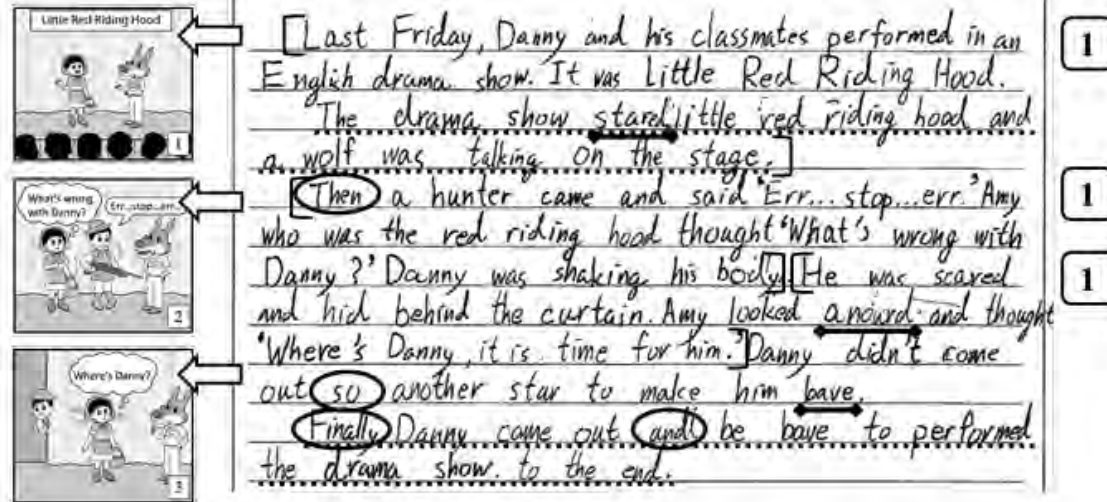 Little Red Riding Hood
1
What's wrong
with Danny?
Err...stop...err...
2
Where's Danny?
3
[Last Friday, Danny and his classmates performed in an
English drama show. It was Little Red Riding Hood.
The drama show stared little red riding hood and
a wolf was talking on the stage.]
[Then a hunter came and said 'Err... stop...err.' Amy
who was the red riding hood thought 'What's wrong with
Danny?' Danny was shaking his body.] [He was scared
and hid behind the curtain. Amy looked anourd and thought
'Where's Danny, it is time for him.'] Danny didn't come
out so another star to make him bave.
Finally Danny come out and be bave to performed
the drama show. to the end.
1
1
1